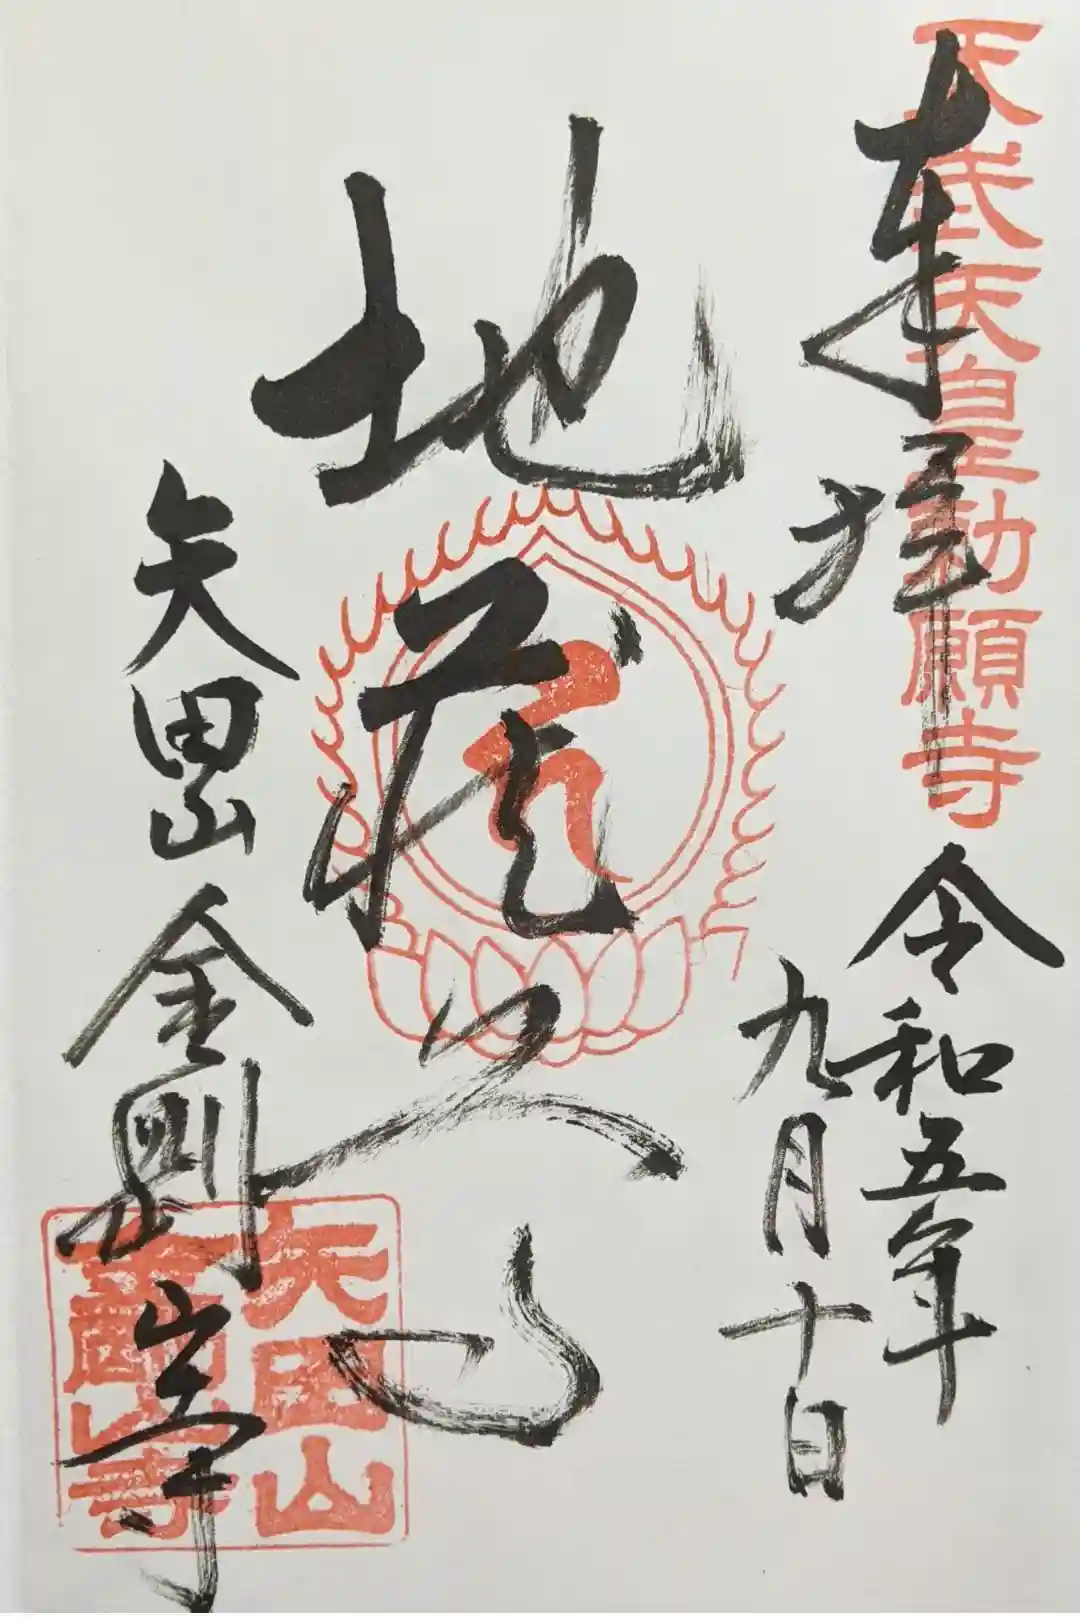 天武天皇勅願寺
奉拝
令和五年
九月十日
地蔵
矢田山金剛山寺
矢田山
金剛山寺